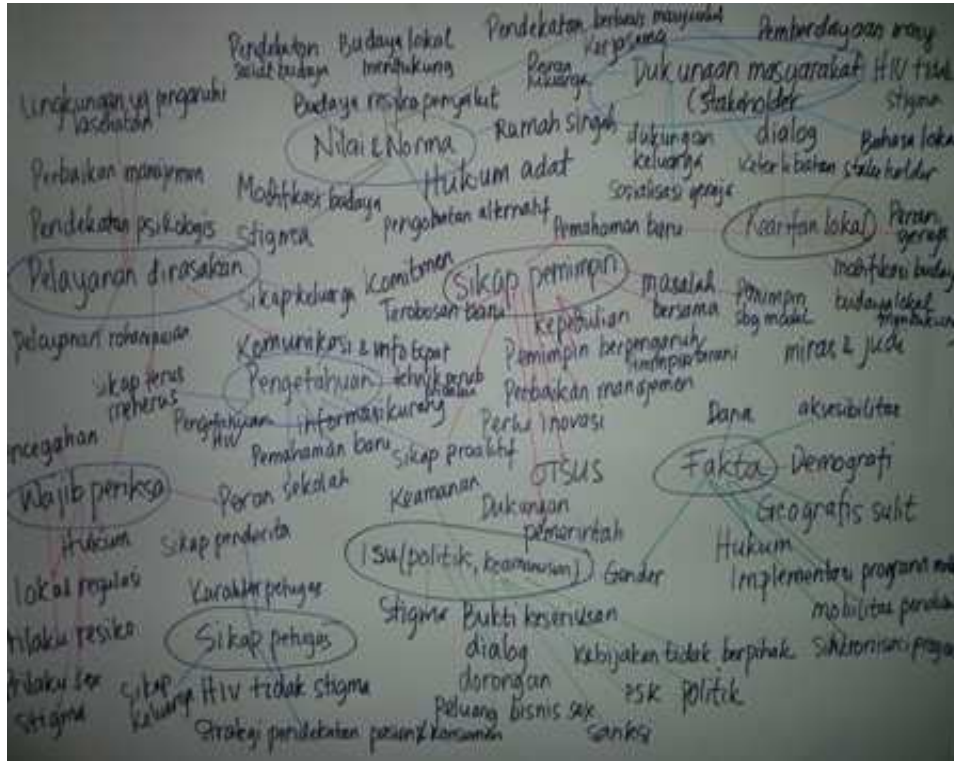 Pendekatan berbasis masyarakat
Pemberdayaan orang
Pendekatan
sosial budaya
Budaya lokal
mendukung
Kerjasama
Peran
keluarga
Dukungan masyarakat
(stakeholder
HIV tidak
stigma
Lingkungan yg pengaruhi
kesehatan
Budaya resiko penyakit
Nilai & Norma
Rumah singgah
dukungan
keluarga
dialog
Bahasa lokal
Keterlibatan stakeholder
Perbaikan manajmen
Modifikasi budaya
Hukum adat
Sosialisasi gereja
Pendekatan psikologis
stigma
pengobatan alternatif
Pemahaman baru
Kearifan lokal
Peran
gereja
Pelayanan dirasakan
Sikap keluarga
Komitmen
Terobosan baru
Sikap pemimpin
kepedulian
masalah
bersama
Pemimpin
sbg model
modifikasi budaya
budaya lokal
mendukung
Pelayanan
Komunikasi & info tepat
Pemimpin berpengaruh
miras & judi
Sikap terus
menerus
Pengetahuan
Perbaikan manajemen
Pengetahuan
HIV
informasi kurang
Perlu inovasi
Dana
aksesibilitas
Pemahaman baru
Sikap proaktif
Fakta
Demografi
Wajib periksa
Peran sekolah
Keamanan
OTSUS
Geografis sulit
Hukum
Sikap penderita
Dukungan
pemerintah
Hukum
Isu (politik, keamanan)
Gender
Implementasi program
lokal regulasi
Karakter petugas
mobilitas
Stigma
Bukti keseriusan
Sikap petugas
dialog
Kebijakan tidak berpihak
Sinkronisasi program
dorongan
Sikap
keluarga
HIV tidak stigma
PSK
politik
stigma
peluang bisnis sex
Strategi pendekatan pasien/konsumen
sanksi